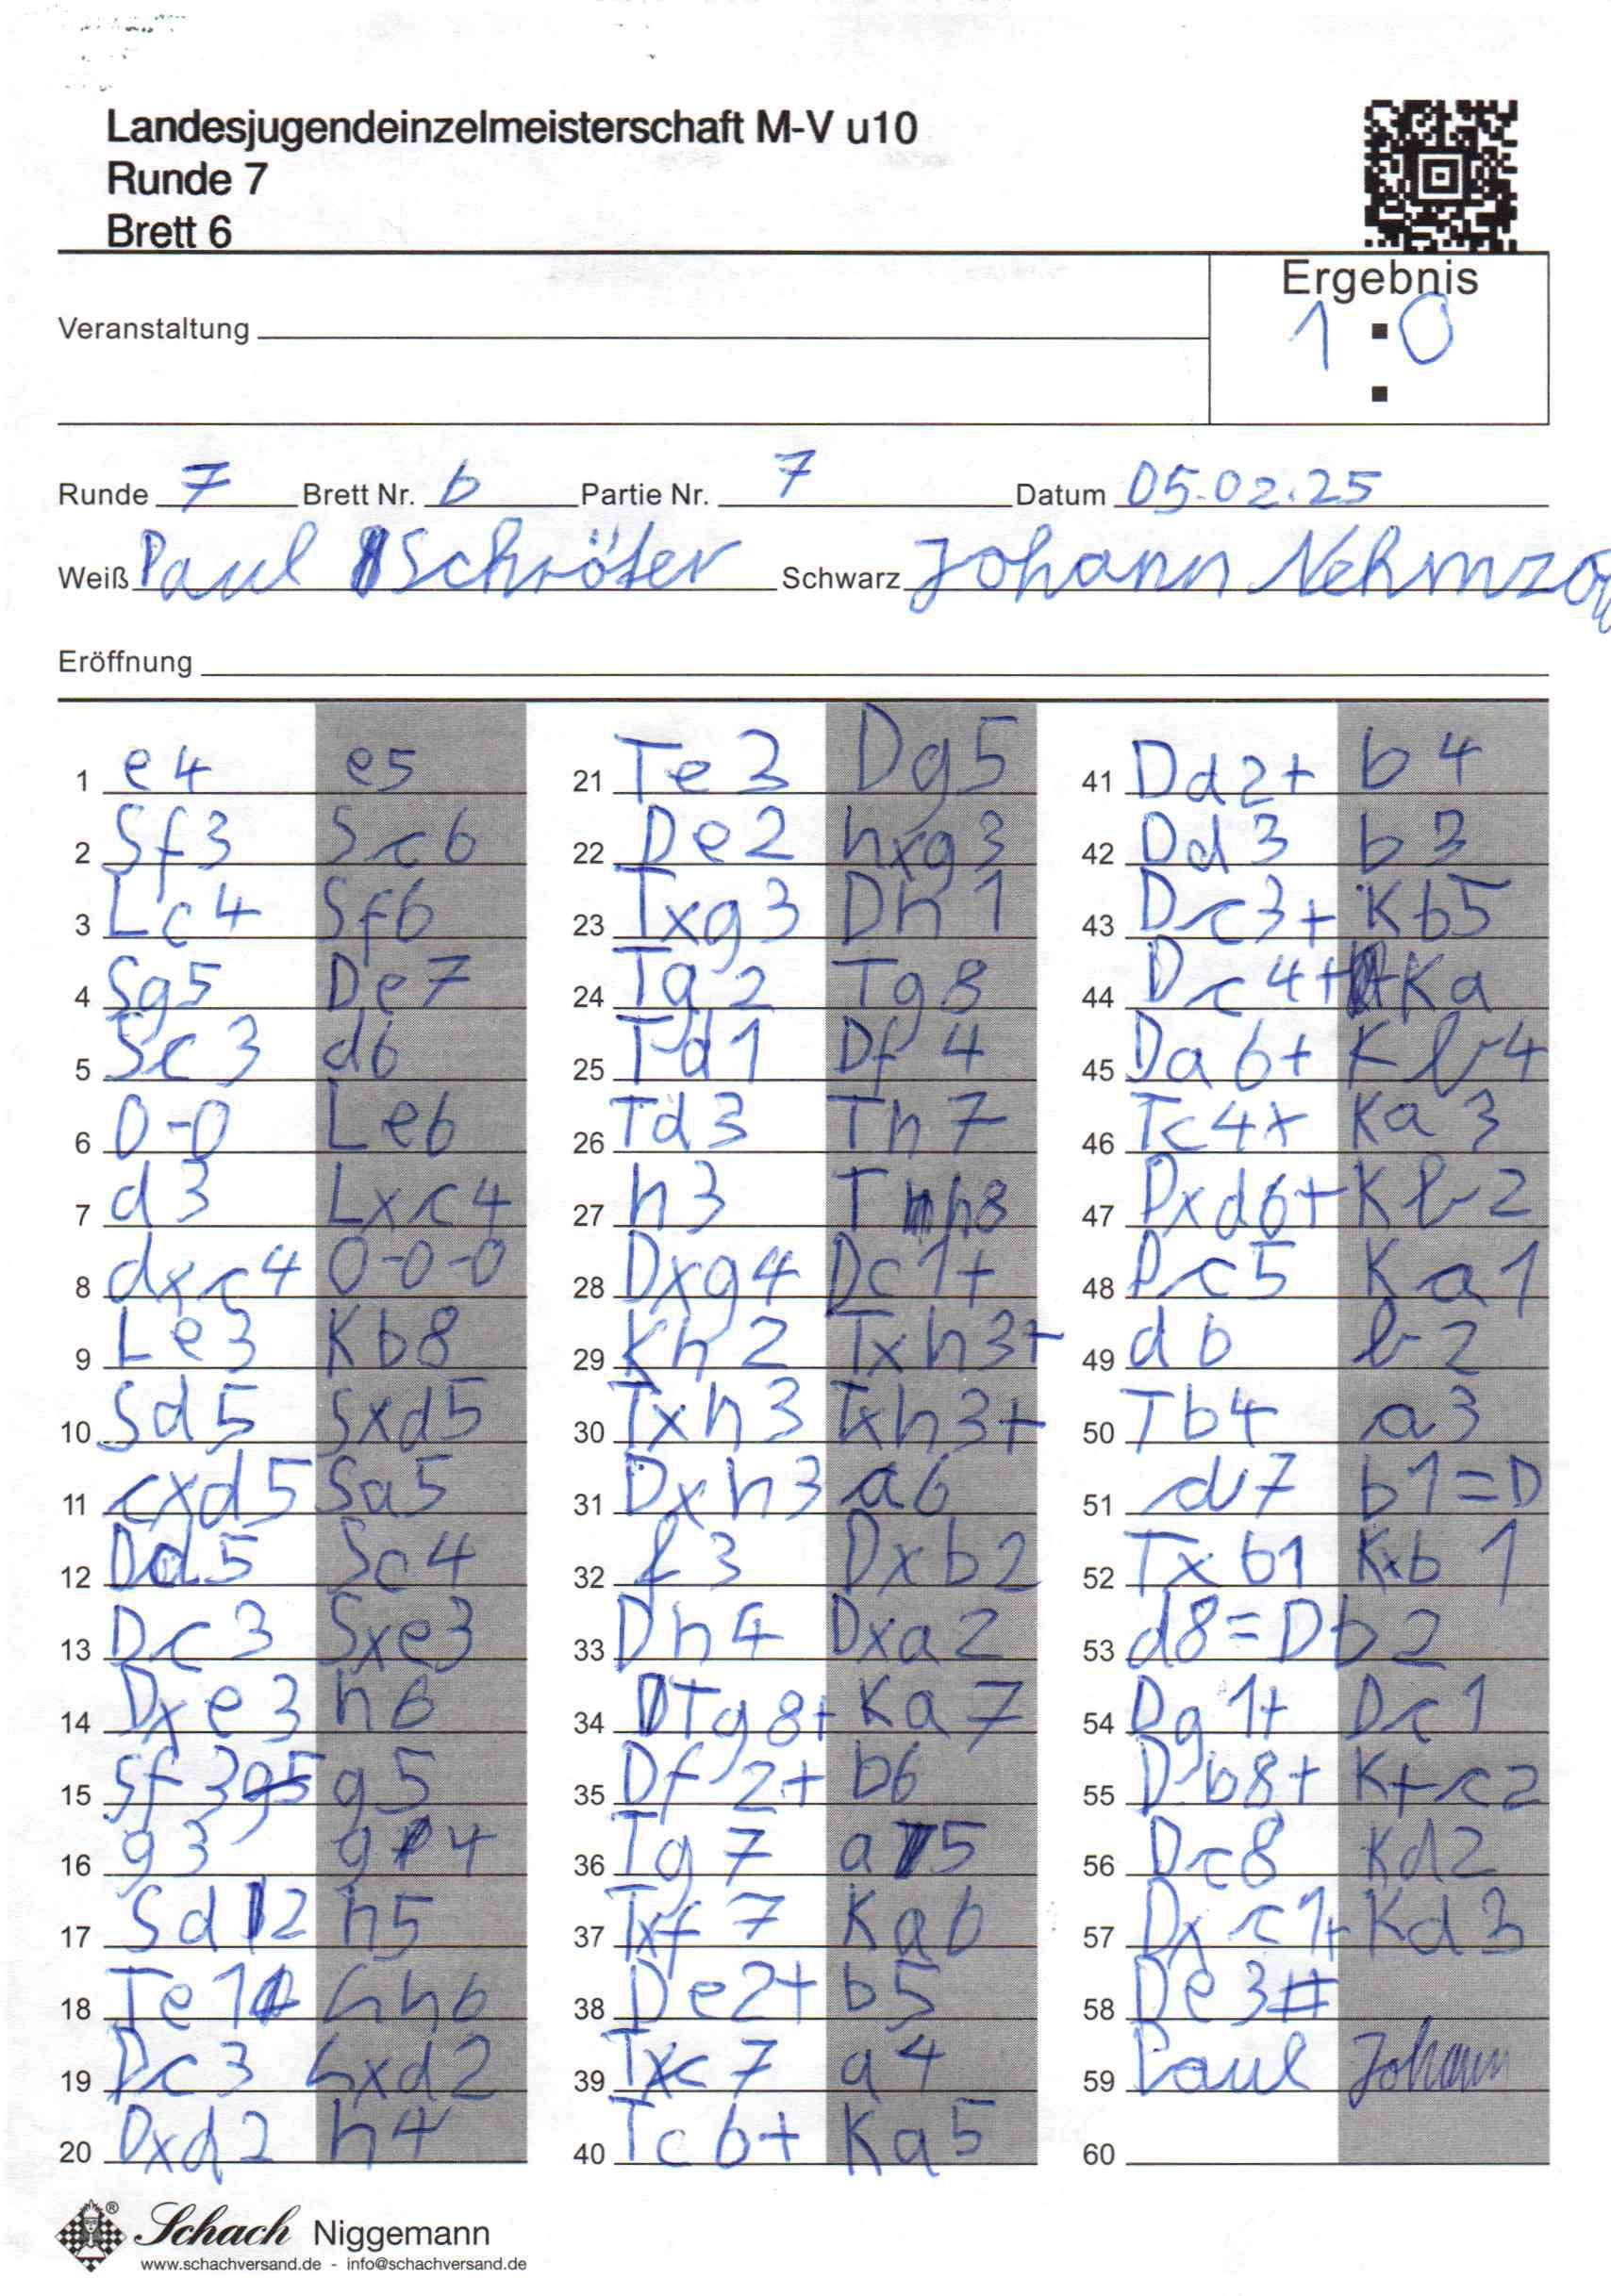 Landesjugendeinzelmeisterschaft M-V u10
Runde 7
Brett 6
Ergebnis
1 : 0
Veranstaltung
Runde 7 Brett Nr. 6 Partie Nr. 7 Datum 05.02.25
Weiß Paul Schröter Schwarz Johann Nehmzow
Eröffnung
1 e4 e5
2 Sf3 Sc6
3 Lc4 Sf6
4 Sg5 De7
5 Sc3 d6
6 0-0 Le6
7 d3 Lxc4
8 dxc4 0-0-0
9 Le3 Kb8
10 Sd5 Sxd5
11 cxd5 Sa5
12 Dd5 Sc4
13 Dc3 Sxe3
14 Dxe3 h6
15 Sf3 g5
16 g3 g4
17 Sd2 h5
18 Te1 Lh6
19 Dc3 Lxd2
20 Dxd2 h4
21 Te3 Dg5
22 De2 hxg3
23 Txg3 Dh1
24 Tg2 Tg8
25 Td1 Df4
26 Td3 Th7
27 h3 Th8
28 Dxg4 Dc1+
29 Kh2 Txh3+
30 Txh3 Txh3+
31 Dxh3 a6
32 f3 Dxb2
33 Dh4 Dxa2
34 Tg8+ Ka7
35 Df2+ b6
36 Tg7 a5
37 Txf7 Ka6
38 De2+ b5
39 Txc7 a4
40 Tc6+ Ka5
41 Dd2+ b4
42 Dd3 b3
43 Dc3+ Kb5
44 Dc4+ Ka
45 Da6+ Kb4
46 Tc4+ Ka3
47 Dxd6+ Kb2
48 Dc5 Ka1
49 d6 b2
50 Tb4 a3
51 d7 b1=D
52 Txb1 Kxb1
53 d8=D b2
54 Dg1+ Dc1
55 Db8+ K+c2
56 Dc8 Kd2
57 Dxc1+ Kd3
58 De3#
59 Paul Johann
60
Schach Niggemann
www.schachversand.de - info@schachversand.de